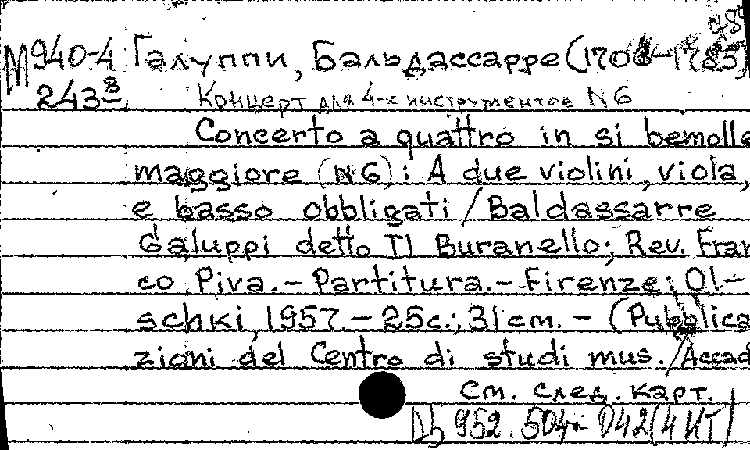 М940-4 Галуппи, Бальдассарре (1706-1785)
243 8 Концерт для 4-х инструментов N 6
Concerto a quattro in si bemolle
maggiore (N 6): A due violini, viola,
e basso obbligati / Baldassarre
Galuppi detto Il Buranello; Rev. Fran
co Piva. - Partitura. - Firenze: Ol-
schki, 1957. - 25c.; 31cm. - (Pubblica
zioni del Centro di studi mus. / Accad
См. след. карт.
952.504- 042(4 ИТ)